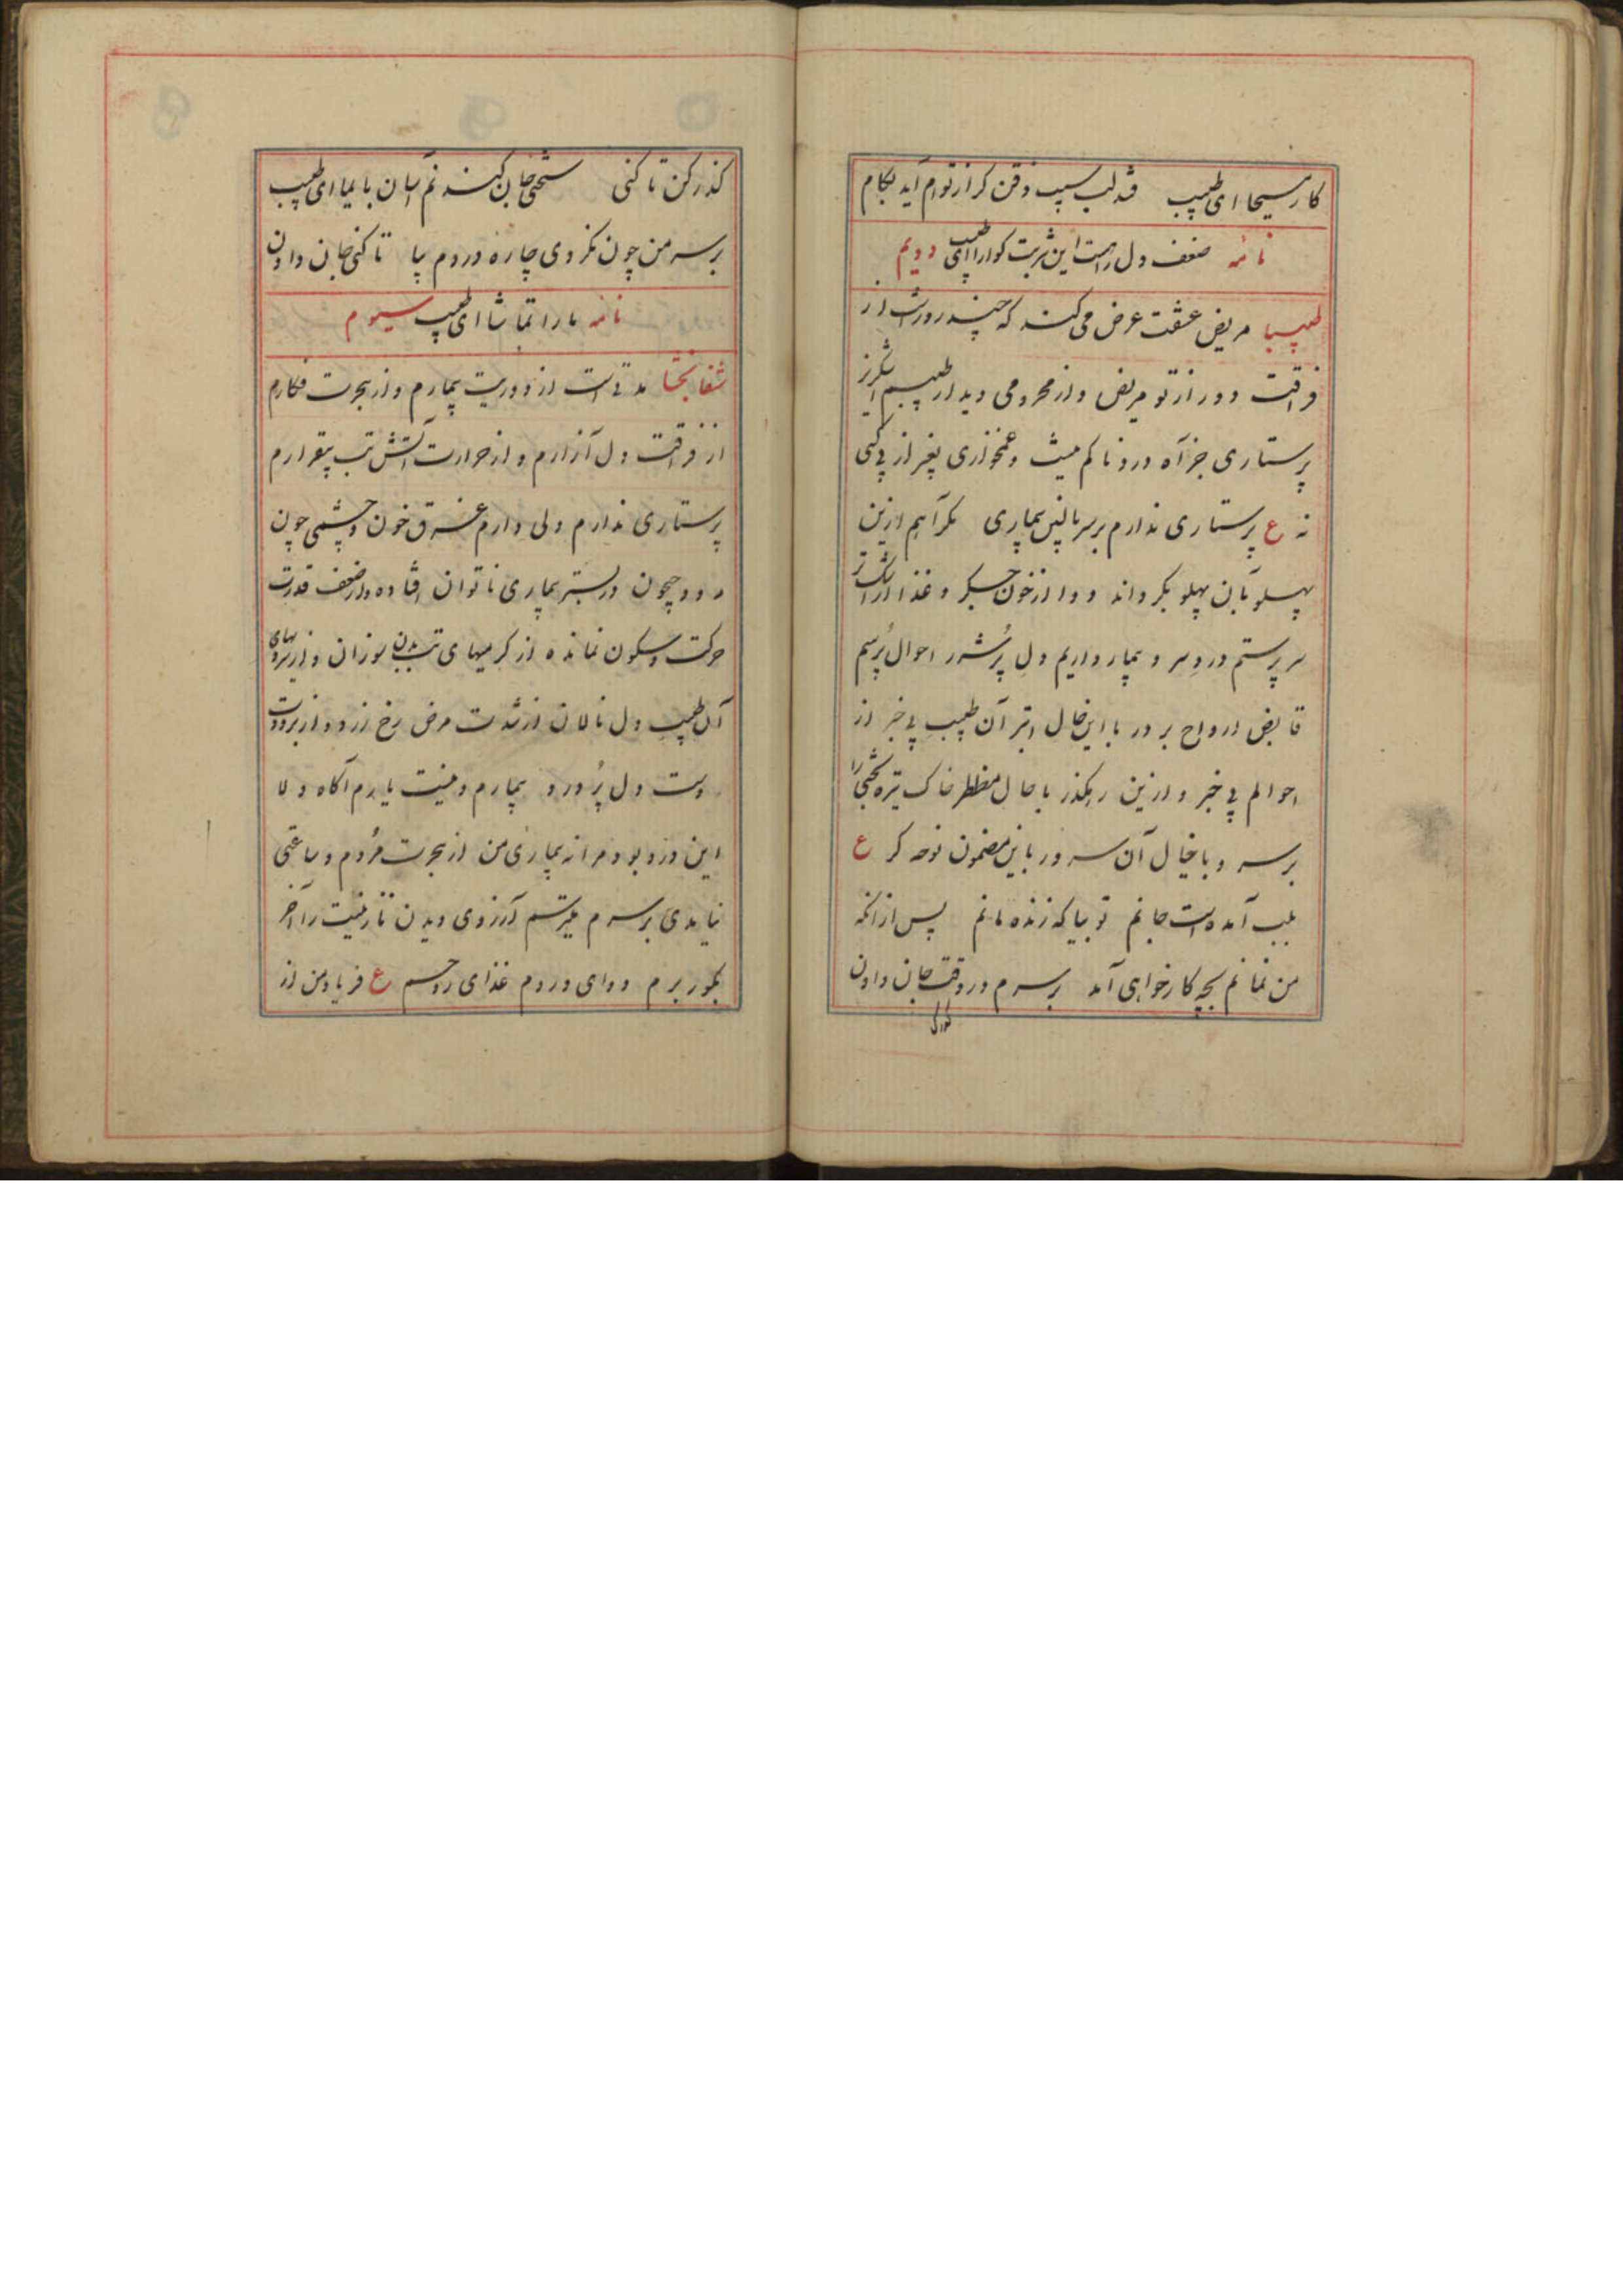 کار مسیحا ای طبیب قند لب سیب ذقن کر از توام آید بکام
نامه ضعف دل راهست این شربت کوارا ای طبیب دویم
طبیبا مریض عشقت عرض می کند که چند روز است از
فراقت دور از تو مریض و از محرومی دیدار طبیبم
پرستاری جز آه دردناکم نیست و غمخواری بغیر از بی کسی
نه ع پرستاری ندارم بر سر بالین بیماری مکر آهم ازین
پهلو بآن پهلو بکرداند دوا از خون جگر و غذا از
سر پرستم درد سر و بیمار داریم دل پر شرر احوال پرسم
قابض ارواح بر در با این حال ابتر آن طبیب بی خبر از
احوالم بی خبر و ازین رهکذر با حال مضطر خاک تیره بختی را
بر سر و با خیال آن سرور باین مضمون نوحه کر ع
بلب آمده است جانم تو بیا که زنده مانم پس از انکه
من نمانم بچه کار خواهی آمد بر سرم در وقت جان دادن
کذر کن تا کنی سختی جان کندنم آسان بیا ای طبیب
بر سر من چون نکردی چاره دردم بیا تا کنی جان دادن
نامه ما را تماشا ای طبیب سیوم
شفا بخشا مدتی است از دوریت بیمارم و از هجرت فکارم
از فراقت دل آزارم و از حرارت آتش تب بیقرارم
پرستاری ندارم دلی دارم غرق خون و چشمی چون
رود جیحون در بستر بیماری ناتوان افتاده و از ضعف قدرت
حرکت و سکون نمانده از کرمیهای تب بدن سوزان و از
آن طبیب دل نالان از شدت مرض رخ زرد و از برودت
دست دل پر درد بیمارم و نیست یارم آکاه دلا
این درد بود مرا نه بیماری من از هجرت مردم و ساعتی
نیامدی بر سرم میترسم آرزوی دیدن نازنینت را آخر
بکور برم دوای دردم غذای روحم ع فریاد من از